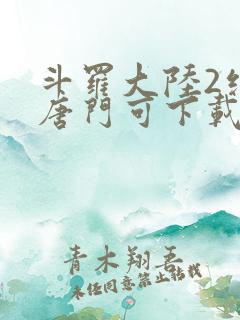 斗羅大陸2
唐門可下載
青木翔吾
未經同意禁止轉載